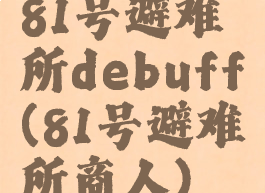 81号避难
所debuff
(81号避难
所商人)